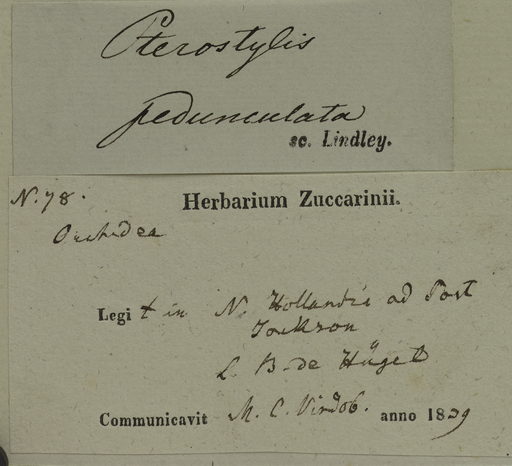 Pterostylis
pedunculata
sc. Lindley.
N. 78.
Herbarium Zuccarinii.
Orchidea
Legit in N. Hollandia ad Port
Jackson
L. B. de Hügel
Communicavit M. C. Vindob. anno 1839